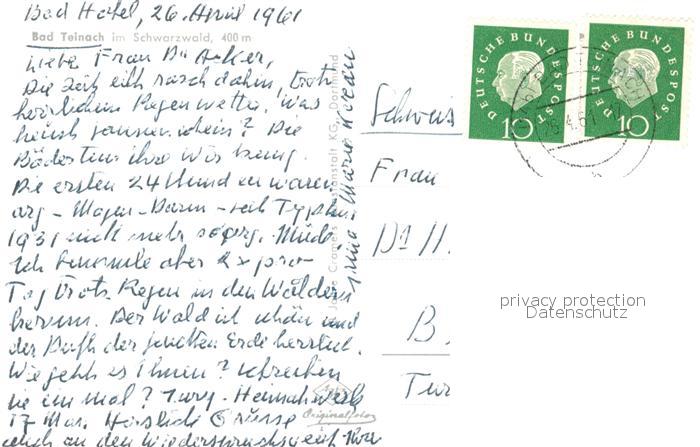 Bad Hotel, 26. April 1961
Bad Teinach im Schwarzwald, 400 m
Liebe Frau Dr Acker,
die Zeit eilt rasch dahin, trotz
herrlichem Regenwetter. Was
heisst sonnenschein? Die
Bäder tun ihre Wirkung.
Die ersten 24 Stunden waren
arg - Magen - Darm - seit Typhus
1931 nicht mehr so arg. Müde
Ich bummle aber 2 x pro
Tag trotz Regen in den Wäldern
herum. Der Wald ist schön und
der Duft der feuchten Erde herrlich.
Wie geht es Ihnen? schreiben
sie ein mal?
17 Mai. Herzliche Grüsse
auch an den Ihre
Maria
KG, Dortmund
Original-foto
Schweiz
Frau
Dr H.
B
Tur
DEUTSCHE BUNDESPOST
10
DEUTSCHE BUNDESPOST
10
26.4.61
privacy protection
Datenschutz